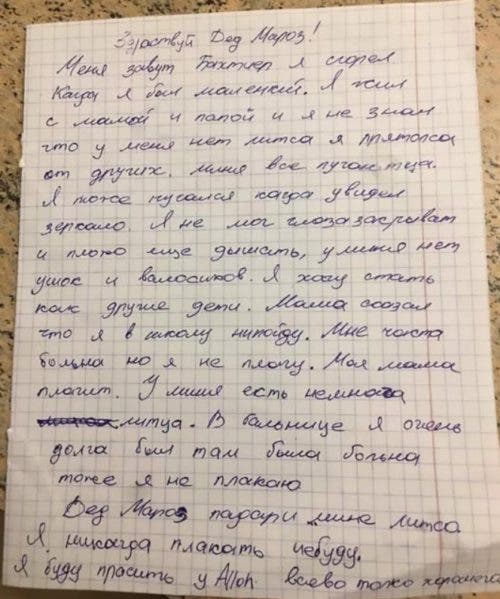 Здраствуй Дед Мароз!
Меня завут Бахтиер я сгорел
Кагда я был маленкий. Я жил
с мамай и папой и я не знал
что у меня нет литса я прятолса
от других. миня все пугаютца.
Я тоже пугался кагда увидел
зеркало. Я не мог глоза закрыват
и плохо ище дышать, у миня нет
ушок и валосиков. Я хочу стать
как другие дети. Мама сказал
что я в школу нипойду. Мне часта
больна но я не плачу. Моя мама
плачит. У миня есть немнога
литца. В бальнице я очень
долга был там была больна
тоже я не плакаю
Дед Мароз падари мине литса
Я никагда плакать небуду.
Я буду прасить у Alloh всево тоже хорошега